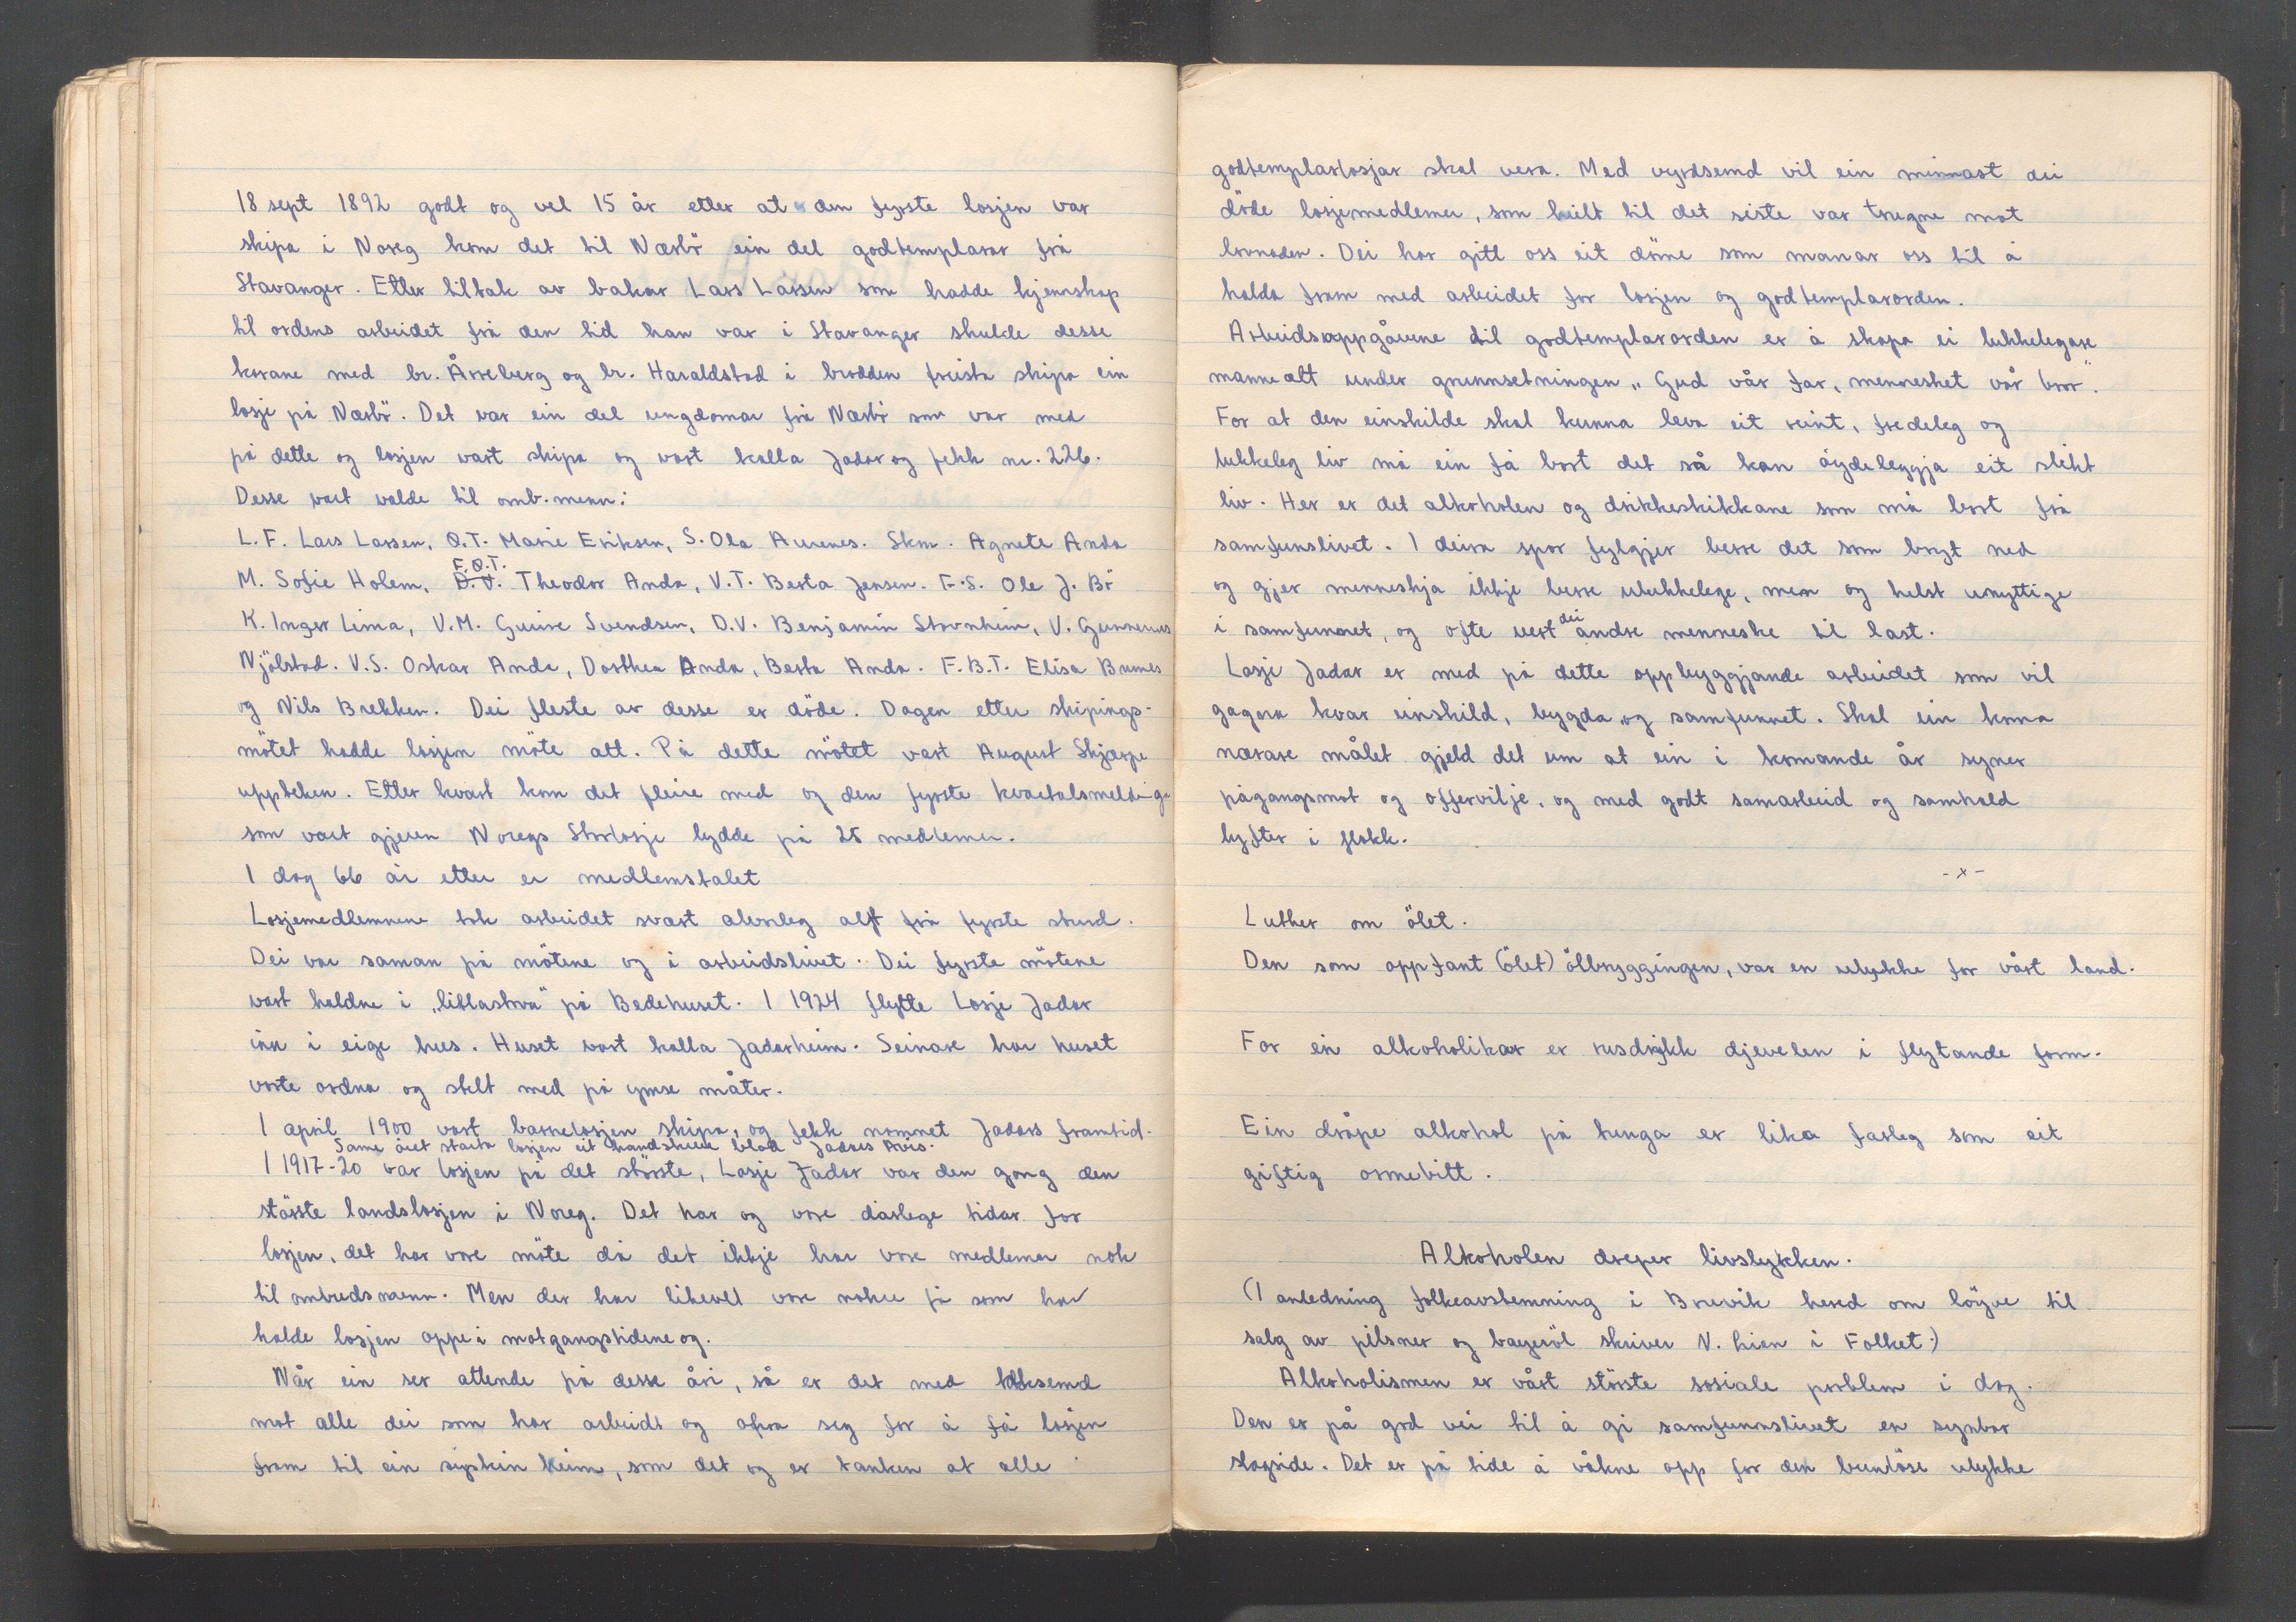 18 sept 1892 godt og vel 15 år etter at den fyrste losjen var
skipa i Noreg kom det til Nærbö ein del godtemplarar frå
Stavanger. Etter tiltak av bakar Lars Larsen som hadde kjennskap
til ordens arbeidet frå den tid han var i Stavanger skulde desse
karane med br. Årreberg og br. Haraldstad i brodden freista skipa ein
losje på Nærbö. Det var ein del ungdomar frå Nærbö som var med
på dette og losjen vart skipa og vart kalla Jadar og fekk nr. 226.
Desse vart valde til omb.menn:
L.F. Lars Larsen, Q.T. Marie Eriksen, S. Ola Aurenes. Skm. Agnete Anda
F.Q.T.
M. Sofie Holem, Theodor Anda, V.T. Berta Jensen. F.S. Ole J. Bö
K. Inger Lima, V.M. Guire Svendsen, D.V. Benjamin Stavnheim, V. Gunnenus
Njölstad. V.S. Oskar Anda, Dorthea Anda, Berta Anda. F.B.T. Elisa Brunes
og Nils Brekken. Dei fleste av desse er döde. Dagen etter skipings-
mötet hadde losjen möte att. På dette mötet vart August Skjærpe
uppteken. Etter kvart kom det fleire med og den fyrste kvartalsmeldinga
som vart gjeven Noregs Storlosje lydde på 25 medlemer.
I dag 66 år etter er medlemstalet
Losjemedlemnene tok arbeidet svært alvorleg alt frå fyrste stund.
Dei var saman på mötene og i arbeidslivet. Dei fyrste mötene
vart haldne i „litlastva" på Bedehuset. I 1924 flytte Losje Jadar
inn i eige hus. Huset vart kalla Jadarheim. Seinare har huset
vorte ordna og stelt med på ymse måter.
I april 1900 vart barnelosjen skipa, og fekk namnet Jadars framtid.
Same året starta losjen eit handskreve blad Jadars Avis.
I 1917-20 var losjen på det störste, Losje Jadar var den gong den
störste landslosjen i Noreg. Det har og vore dårlege tidar for
losjen, det har vore möte då det ikkje har vore medlemer nok
til ombudsmenn. Men der har likevel vore nokre få som har
halde losjen oppe i motgangstidene og.
Når ein ser attende på desse åri, så er det med takksemd
mot alle dei som har arbeidt og ofra seg for å få losjen
fram til ein syskin heim, som det og er tanken at alle
godtemplarlosjar skal vera. Med vyrdsemd vil ein minnast dei
döde losjemedlemer, som heilt til det siste var trugne mot
lovnaden. Dei har gitt oss eit döme som manar oss til å
halda fram med arbeidet for losjen og godtemplarorden.
Arbeidsoppgåvene til godtemplarorden er å skapa ei lukkelegare
manneætt under grunnsetningen „Gud vår far, menneshet vår bror".
For at den einskilde skal kunna leva eit reint, fredeleg og
lukkeleg liv må ein få bort det så kan öydeleggja eit slikt
liv. Her er det alkoholen og drikkeskikkane som må bort frå
samfunslivet. I deira spor fylgjer berre det som bryt ned
og gjer menneskja ikkje berre ulukkelege, men og helst unyttige
i samfunnet, og ofte vert dei andre menneske til last.
Losje Jadar er med på dette oppbyggjande arbeidet som vil
gagna kvar einskild, bygda og samfunnet. Skal ein koma
nærare målet gjeld det um at ein i komande år syner
pågangsmot og offervilje, og med godt samarbeid og samhald
lyfter i flokk.
-x-
Luther om ölet.
Den som oppfant (ölet) ölbryggingen, var en ulykke for vårt land.
For ein alkoholikar er rusdrykk djevelen i flytande form.
Ein dråpe alkohol på tunga er lika farleg som eit
giftig ormebitt.
Alkoholen dreper livslykken.
(I anledning folkeavstemning i Brevik hered om löyve til
salg av pilsner og bayeröl skriver N. Lien i Folket.)
Alkoholismen er vårt störste sosiale problem i dag.
Den er på god vei til å gi samfunnslivet en synbar
slagside. Det er på tide å våkne opp for den bunnlöse ulykke